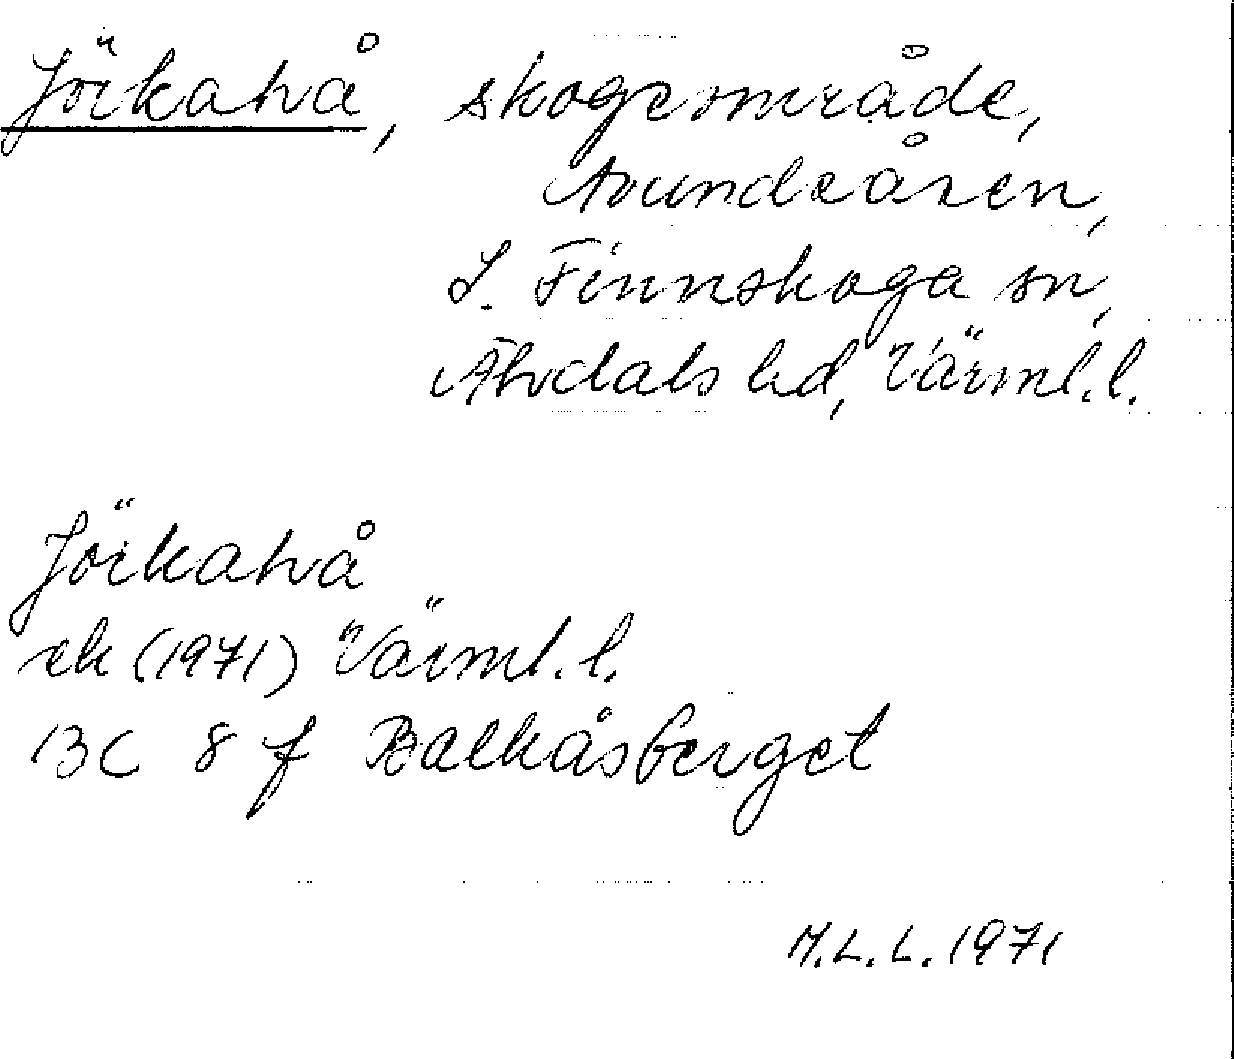 Jöikahå, skogsområde,
Avundsåsen,
S. Finnskoga sn,
Älvdals hd, Värml. l.
Jöikahå
ek (1971) Värml. l.
13C 8 f Balkåsberget
M.L.L. 1971